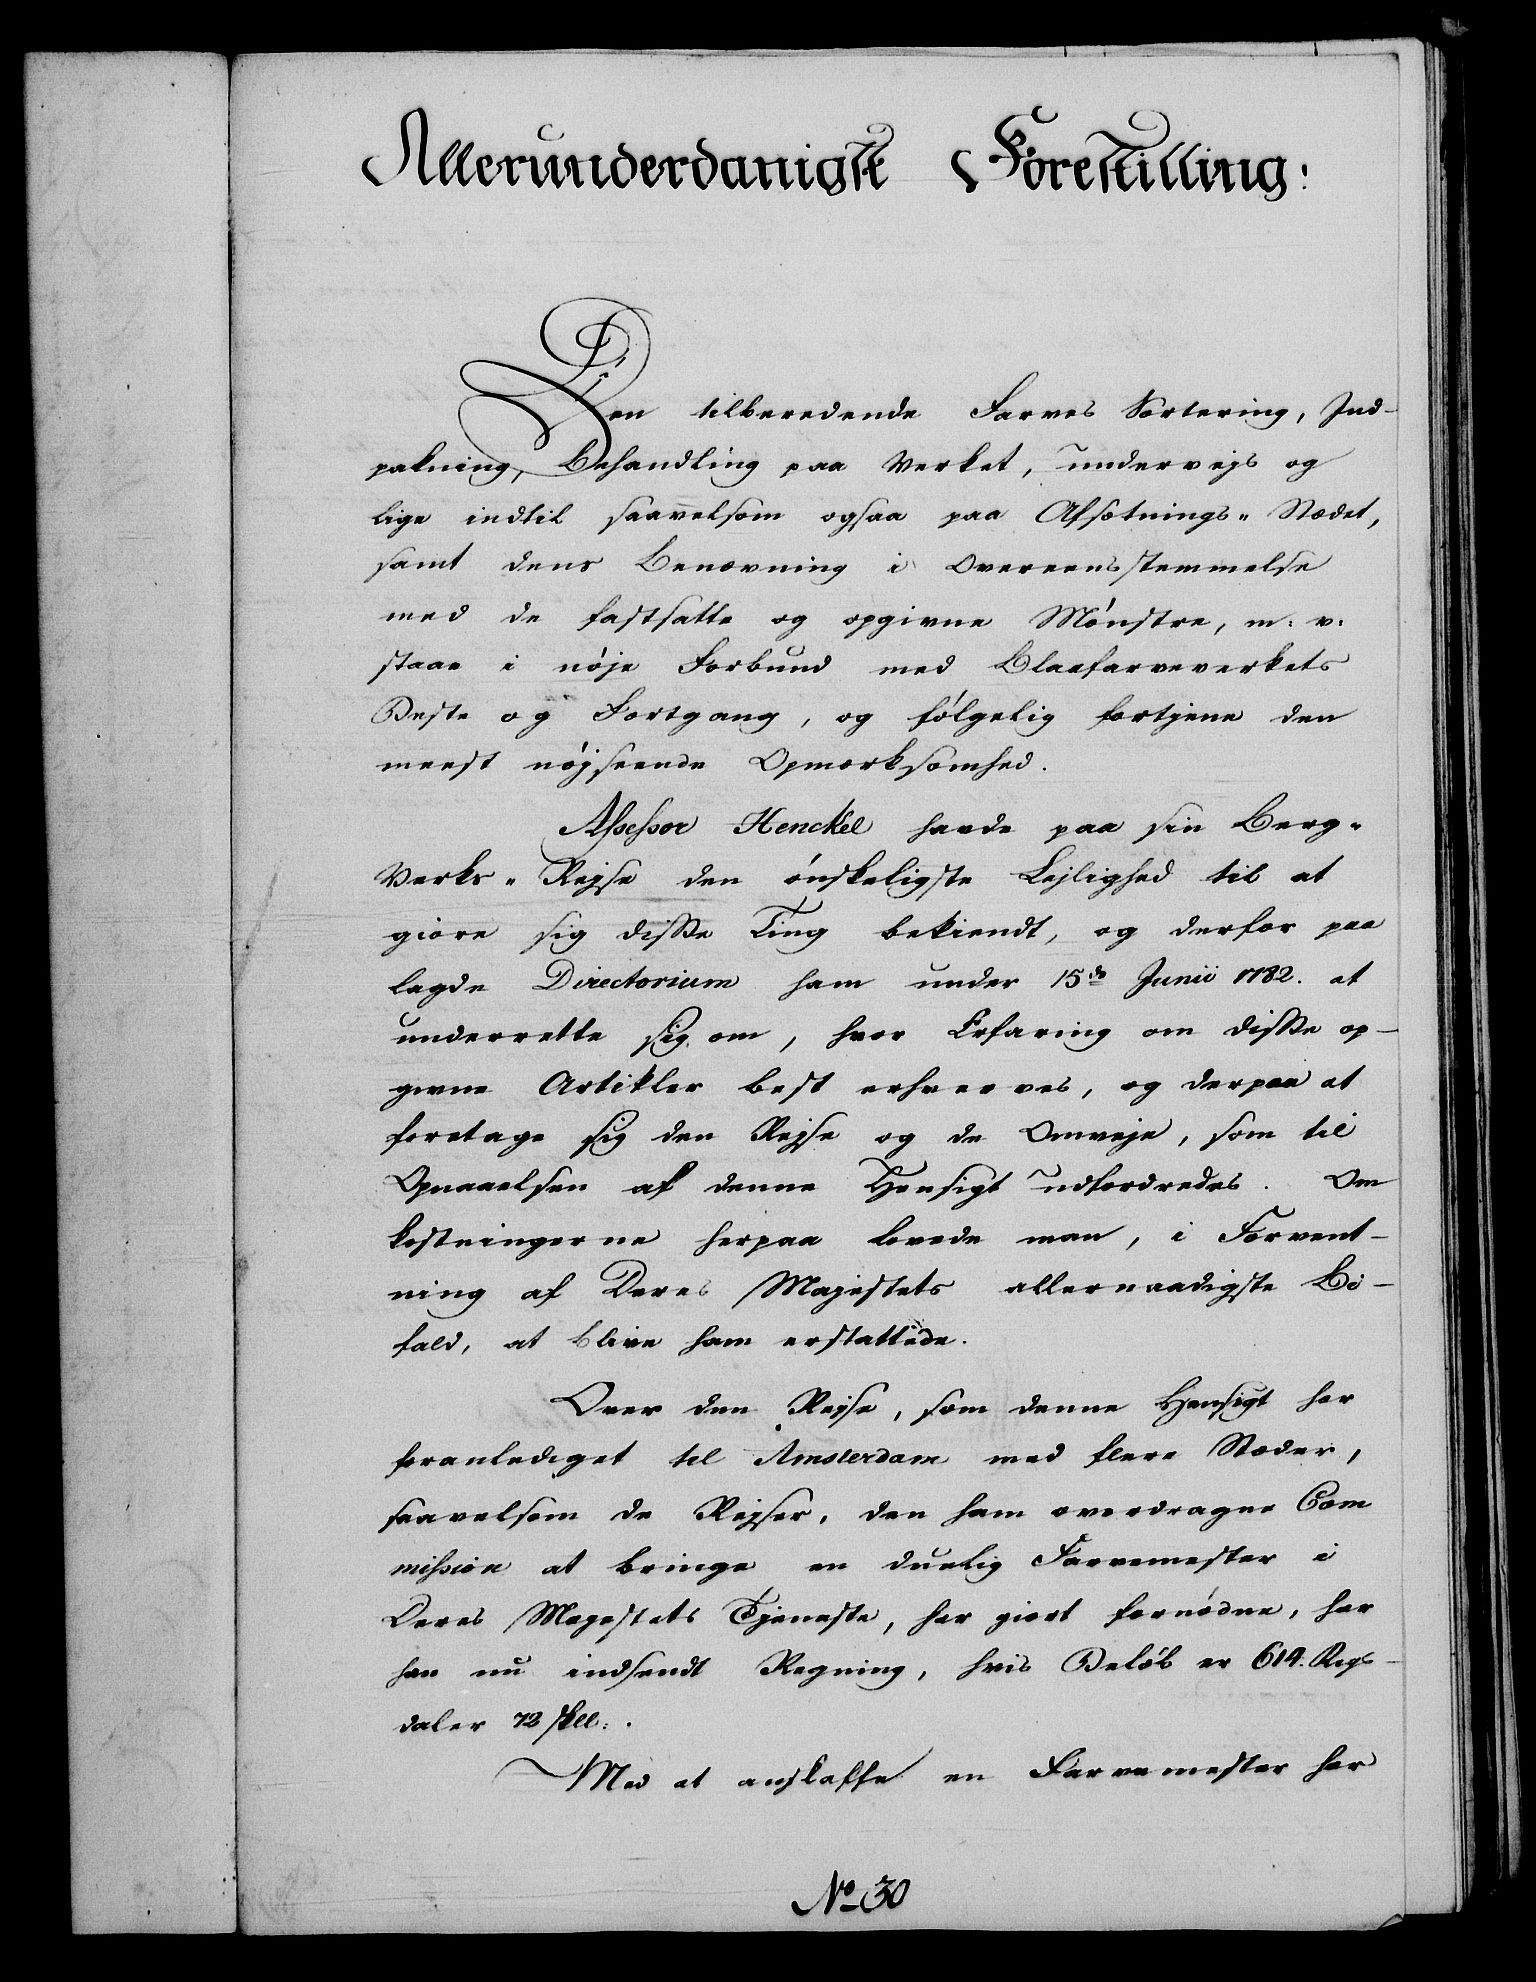 Allerunderdanigste Forestilling:
Den tilberedende Farves Sortering, Ind-
pakning, Behandling paa Verket, undervejs og
lige indtil saavelsom ogsaa paa Afsætnings- Stædet,
samt dens Benævning i Overeensstemmelse
med de fastsatte og opgivne Mønstre, m: v:
staae i nøje Forbund med Blaafarveverkets
Beste og Fortgang, og følgelig fortjene den
meest nøjseende Opmærksomhed.
Assessor Henckel havde paa sin Berg-
Verks- Rejse den ønskeligste Lejlighed til at
giøre sig disse Ting bekiendt, og derfor paa
lagde Directorium ham under 15de Junii 1782. at
underrette sig om, hvor Erfaring om disse op-
givne Artikler best erhverves, og derpaa at
foretage sig den Rejse og de Omveje, som til
Opnaaelsen af denne Hensigt udfordredes. Om
kostningerne herpaa lovede man, i Forvent-
ning af Deres Majestets allernaadigste Bi-
fald, at blive ham erstattede.
Over den Rejse, som denne Hensigt har
foranlediget til Amsterdam med flere Stæder,
saavelsom de Rejser, den ham overdragne Com
mission at bringe en duelig Farvemester i
Deres Majestets Tjeneste, har giort fornødne, har
han nu indsendt Regning, hvis Beløb er 614. Rigs-
daler 72 skll:.
Med at anskaffe en Farvemester har
No 30